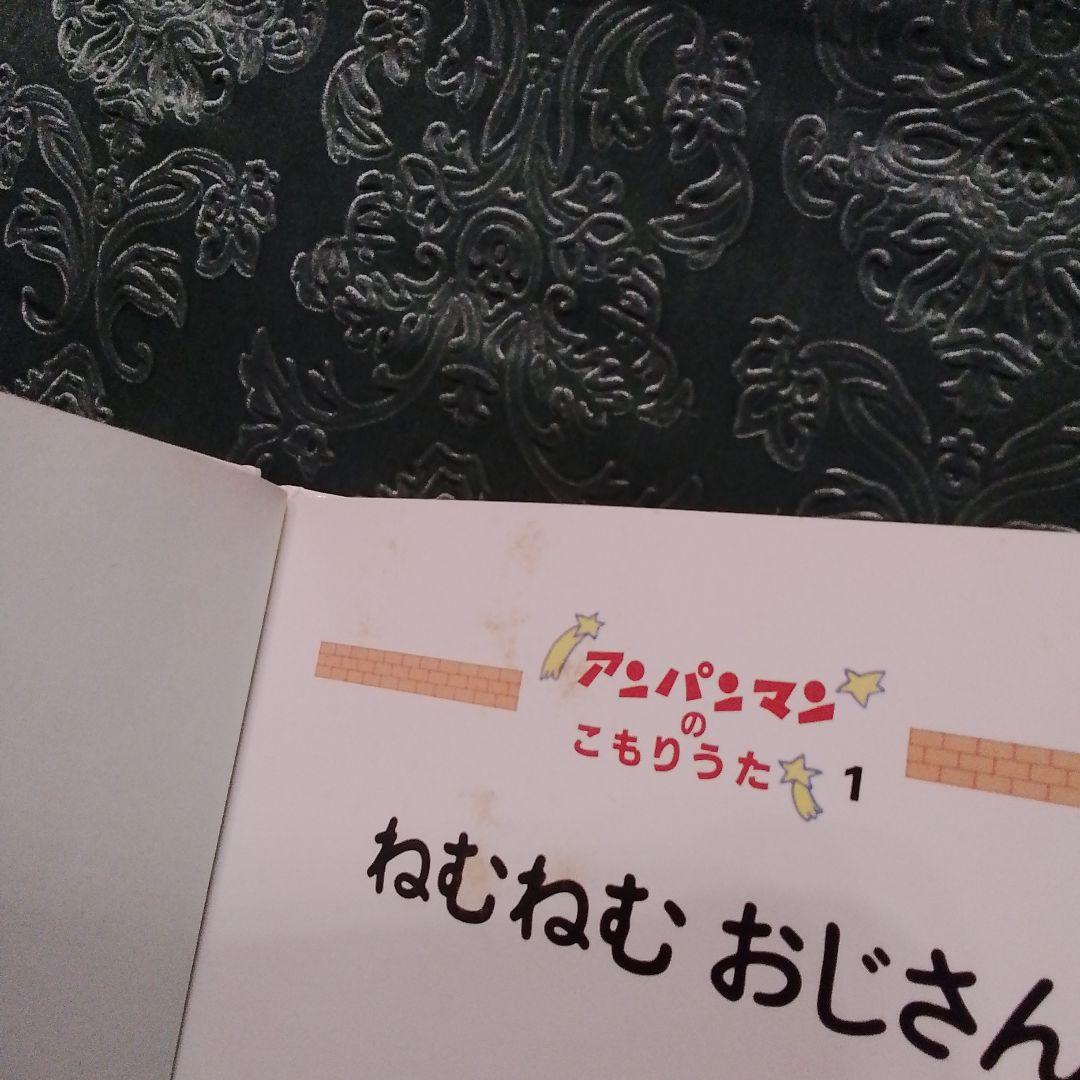 アンパンマン
の
こもりうた 1
ねむねむ おじさん